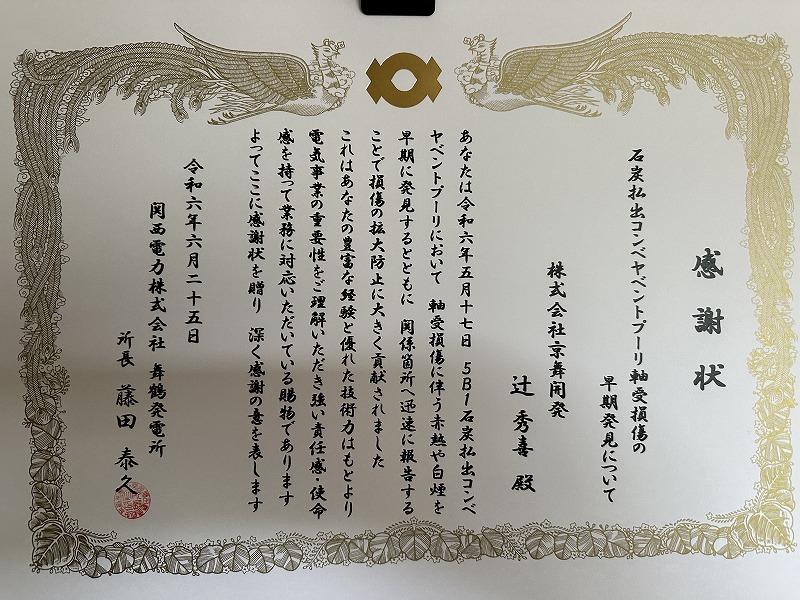 感謝状
石炭払出コンベヤベントプーリ軸受損傷の
早期発見について
株式会社京舞開発
辻 秀喜 殿
あなたは令和六年五月十七日 5B1石炭払出コンベ
ヤベントプーリにおいて 軸受損傷に伴う赤熱や白煙を
早期に発見するとともに 関係箇所へ迅速に報告する
ことで損傷の拡大防止に大きく貢献されました
これはあなたの豊富な経験と優れた技術力はもとより
電気事業の重要性をご理解いただき強い責任感・使命
感を持って業務に対応いただいている賜物であります
よってここに感謝状を贈り 深く感謝の意を表します
令和六年六月二十五日
関西電力株式会社 舞鶴発電所
所長 藤田 泰久